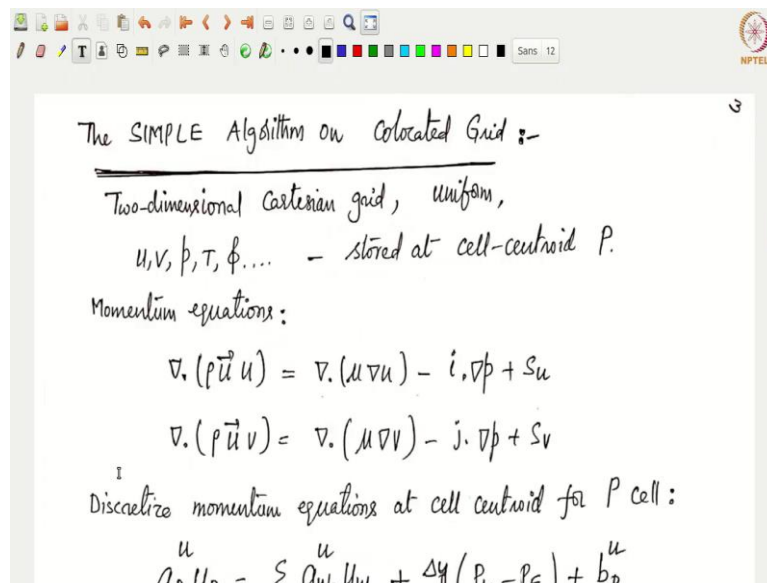 Sans 12
NPTEL
3
The SIMPLE Algorithm on Colocated Grid :-
Two-dimensional Cartesian grid, uniform,
u, v, p, T, φ.... - stored at cell-centroid P.
Momentum equations:
∇. (ρu⃗ u) = ∇. (μ∇u) - i. ∇p + Su
∇. (ρu⃗ v) = ∇. (μ∇v) - j. ∇p + Sv
Discretize momentum equations at cell centroid for P cell: